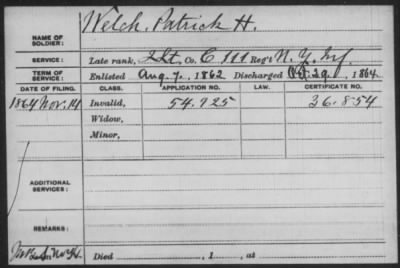 NAME OF SOLDIER: Welch, Patrick H.
SERVICE: Late rank, 2 Lt. Co. C 111 Reg't N.Y. Inf
TERM OF SERVICE: Enlisted Aug. 7, 1862 Discharged Oct. 29, 1864.
DATE OF FILING. CLASS. APPLICATION NO. LAW. CERTIFICATE NO.
1864 Nov. 14 Invalid, 54.925 36.854
Widow,
Minor,
ADDITIONAL SERVICES:
REMARKS:
Died , 1 , at